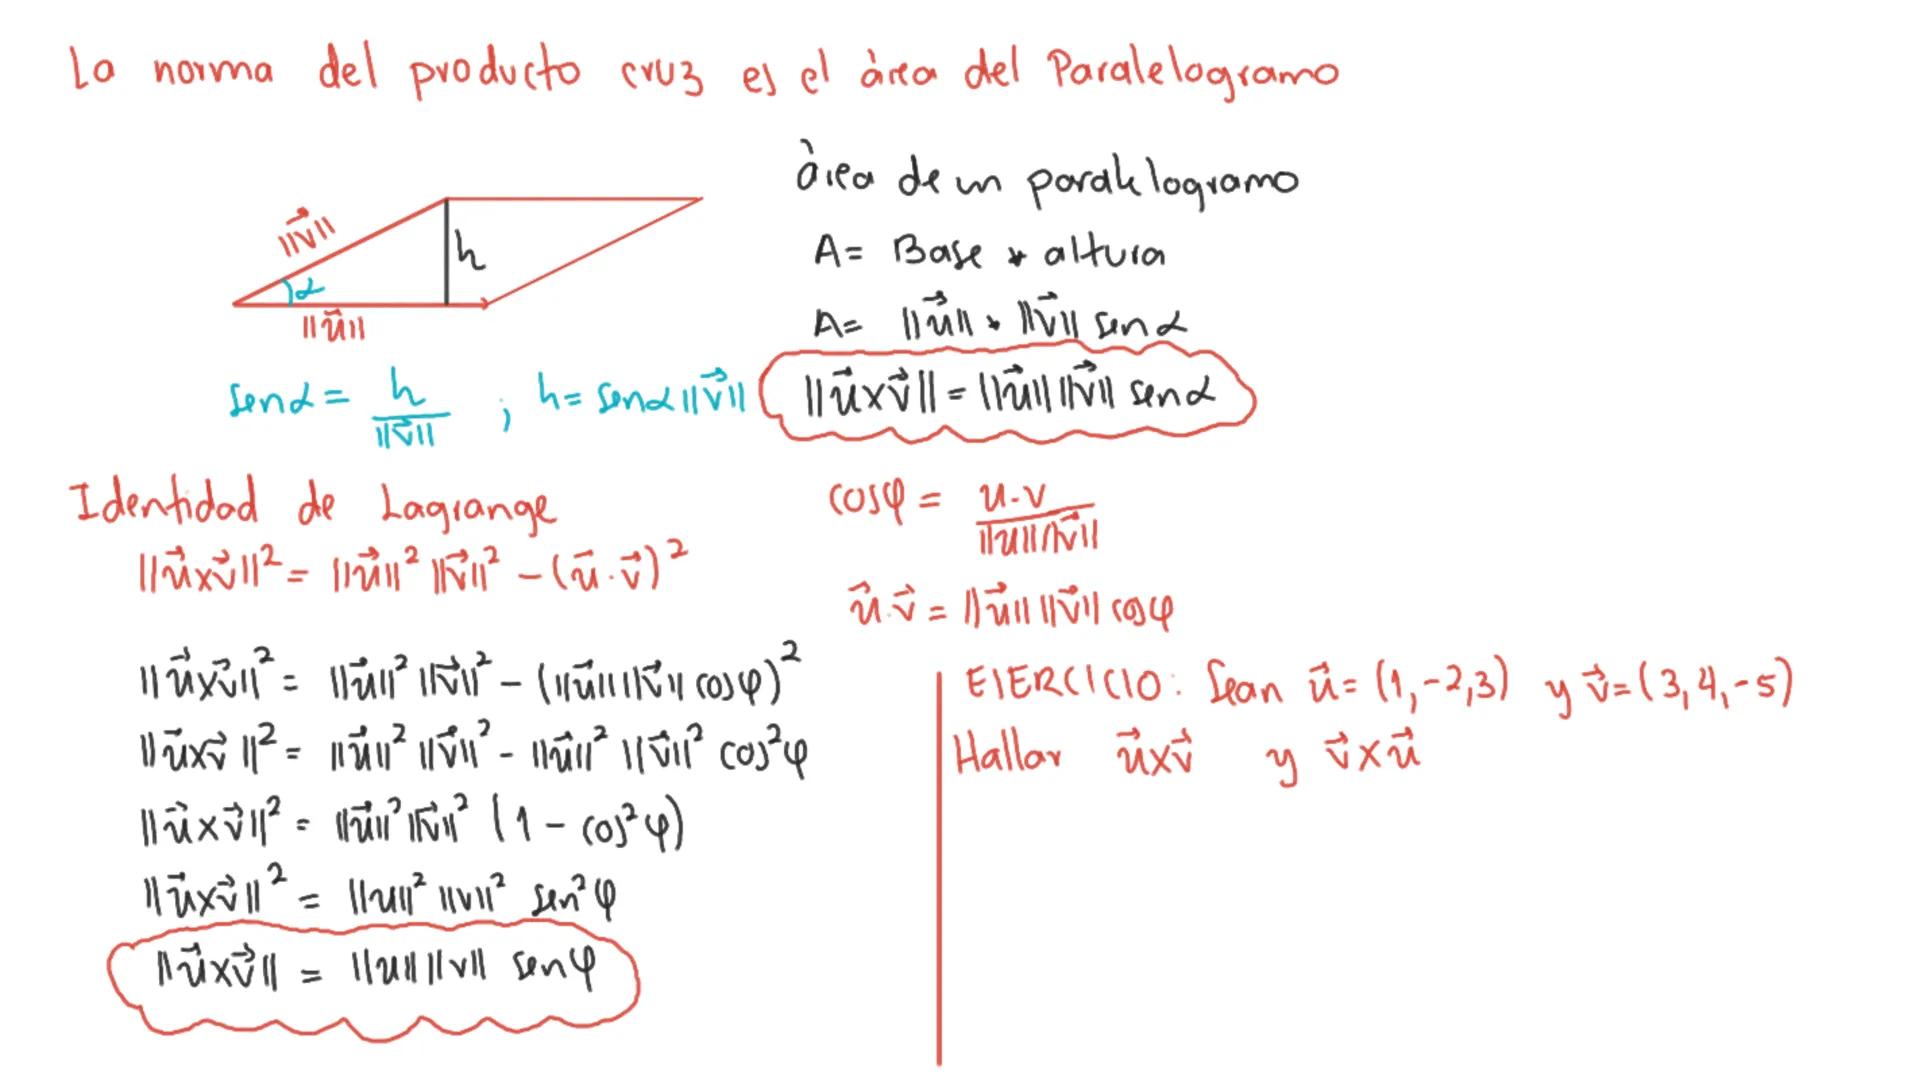 La norma del producto cruz es el àrea del Paralelogramo
àrea de un paralelogramo
||v⃗||
h
α
||u⃗||
A= Base * altura
A= ||u⃗|| * ||v⃗|| sen α
sen α = h / ||v⃗|| ; h= sen α ||v⃗||
||u⃗×v⃗|| = ||u⃗|| ||v⃗|| sen α
Identidad de Lagrange
||u⃗×v⃗||² = ||u⃗||² ||v⃗||² - (u⃗·v⃗)²
cosφ = u·v / ||u|| ||v⃗||
u⃗·v⃗ = ||u⃗|| ||v⃗|| cosφ
||u⃗×v⃗||² = ||u⃗||² ||v⃗||² - (||u⃗|| ||v⃗|| cosφ)²
||u⃗×v⃗||² = ||u⃗||² ||v⃗||² - ||u⃗||² ||v⃗||² cos²φ
||u⃗×v⃗||² = ||u⃗||² ||v⃗||² (1 - cos²φ)
||u⃗×v⃗||² = ||u||² ||v||² sen²φ
||u⃗×v⃗|| = ||u|| ||v|| senφ
EJERCICIO: Sean u⃗= (1,-2,3) y v⃗=(3,4,-5)
Hallar u⃗×v⃗ y v⃗×u⃗